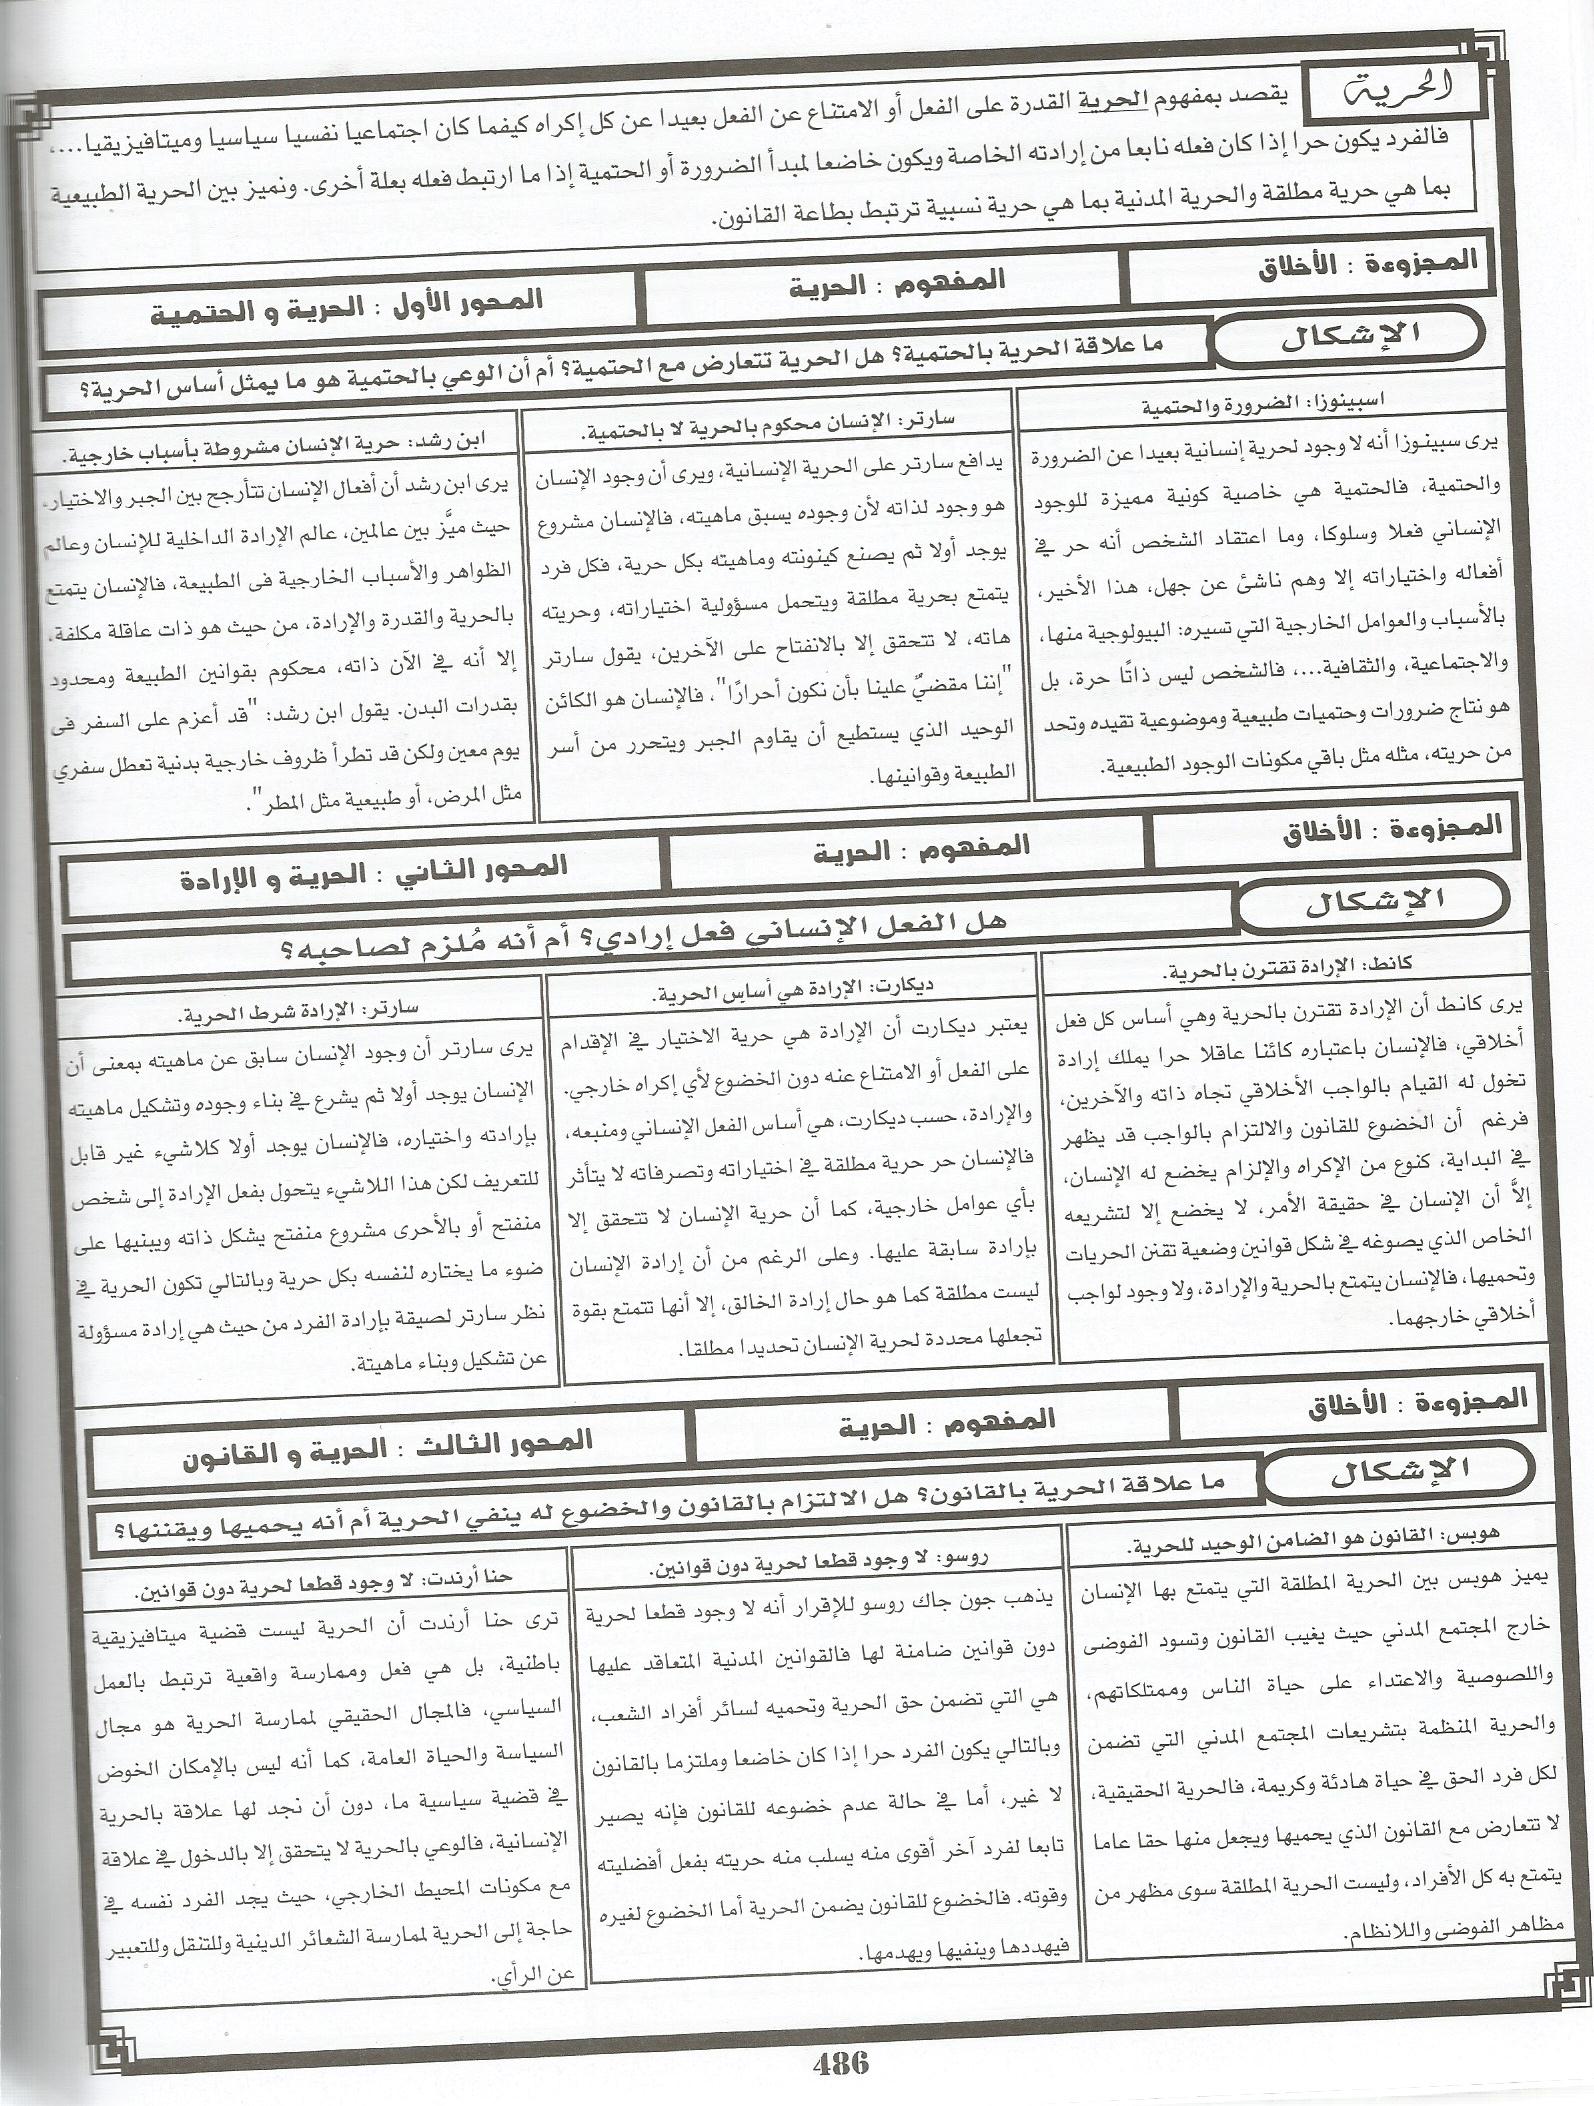 الحرية
يقصد بمفهوم الحرية القدرة على الفعل أو الامتناع عن الفعل بعيدا عن كل إكراه كيفما كان اجتماعيا نفسيا سياسيا وميتافيزيقيا....،
فالفرد يكون حرا إذا كان فعله نابعا من إرادته الخاصة ويكون خاضعا لمبدأ الضرورة أو الحتمية إذا ما ارتبط فعله بعلة أخرى. ونميز بين الحرية الطبيعية
بما هي حرية مطلقة والحرية المدنية بما هي حرية نسبية ترتبط بطاعة القانون.
المجزوءة : الأخلاق
المفهوم : الحرية
المحور الأول : الحرية و الحتمية
الإشكال
ما علاقة الحرية بالحتمية؟ هل الحرية تتعارض مع الحتمية؟ أم أن الوعي بالحتمية هو ما يمثل أساس الحرية؟
اسبينوزا: الضرورة والحتمية
يرى سبينوزا أنه لا وجود لحرية إنسانية بعيدا عن الضرورة
والحتمية، فالحتمية هي خاصية كونية مميزة للوجود
الإنساني فعلا وسلوكا، وما اعتقاد الشخص أنه حر في
أفعاله واختياراته إلا وهم ناشئ عن جهل، هذا الأخير،
بالأسباب والعوامل الخارجية التي تسيره: البيولوجية منها،
والاجتماعية، والثقافية...، فالشخص ليس ذاتًا حرة، بل
هو نتاج ضرورات وحتميات طبيعية وموضوعية تقيده وتحد
من حريته، مثله مثل باقي مكونات الوجود الطبيعية.
سارتر: الإنسان محكوم بالحرية لا بالحتمية.
يدافع سارتر على الحرية الإنسانية، ويرى أن وجود الإنسان
هو وجود لذاته لأن وجوده يسبق ماهيته، فالإنسان مشروع
يوجد أولا ثم يصنع كينونته وماهيته بكل حرية، فكل فرد
يتمتع بحرية مطلقة ويتحمل مسؤولية اختياراته، وحريته
هاته، لا تتحقق إلا بالانفتاح على الآخرين، يقول سارتر
"إننا مقضيٌّ علينا بأن نكون أحرارًا"، فالإنسان هو الكائن
الوحيد الذي يستطيع أن يقاوم الجبر ويتحرر من أسر
الطبيعة وقوانينها.
ابن رشد: حرية الإنسان مشروطة بأسباب خارجية.
يرى ابن رشد أن أفعال الإنسان تتأرجح بين الجبر والاختيار،
حيث ميَّز بين عالمين، عالم الإرادة الداخلية للإنسان وعالم
الظواهر والأسباب الخارجية فى الطبيعة، فالإنسان يتمتع
بالحرية والقدرة والإرادة، من حيث هو ذات عاقلة مكلفة،
إلا أنه في الآن ذاته، محكوم بقوانين الطبيعة ومحدود
بقدرات البدن. يقول ابن رشد: "قد أعزم على السفر فى
يوم معين ولكن قد تطرأ ظروف خارجية بدنية تعطل سفري
مثل المرض، أو طبيعية مثل المطر".
المجزوءة : الأخلاق
المفهوم : الحرية
المحور الثاني : الحرية و الإرادة
الإشكال
هل الفعل الإنساني فعل إرادي؟ أم أنه مُلزم لصاحبه؟
كانط: الإرادة تقترن بالحرية.
يرى كانط أن الإرادة تقترن بالحرية وهي أساس كل فعل
أخلاقي، فالإنسان باعتباره كائنا عاقلا حرا يملك إرادة
تخول له القيام بالواجب الأخلاقي تجاه ذاته والآخرين،
فرغم أن الخضوع للقانون والالتزام بالواجب قد يظهر
في البداية، كنوع من الإكراه والإلزام يخضع له الإنسان،
إلاَّ أن الإنسان في حقيقة الأمر، لا يخضع إلا لتشريعه
الخاص الذي يصوغه في شكل قوانين وضعية تقنن الحريات
وتحميها، فالإنسان يتمتع بالحرية والإرادة، ولا وجود لواجب
أخلاقي خارجهما.
ديكارت: الإرادة هي أساس الحرية.
يعتبر ديكارت أن الإرادة هي حرية الاختيار في الإقدام
على الفعل أو الامتناع عنه دون الخضوع لأي إكراه خارجي.
والإرادة، حسب ديكارت، هي أساس الفعل الإنساني ومنبعه،
فالإنسان حر حرية مطلقة في اختياراته وتصرفاته لا يتأثر
بأي عوامل خارجية، كما أن حرية الإنسان لا تتحقق إلا
بإرادة سابقة عليها. وعلى الرغم من أن إرادة الإنسان
ليست مطلقة كما هو حال إرادة الخالق، إلا أنها تتمتع بقوة
تجعلها محددة لحرية الإنسان تحديدا مطلقا.
سارتر: الإرادة شرط الحرية.
يرى سارتر أن وجود الإنسان سابق عن ماهيته بمعنى أن
الإنسان يوجد أولا ثم يشرع في بناء وجوده وتشكيل ماهيته
بإرادته واختياره، فالإنسان يوجد أولا كلاشيء غير قابل
للتعريف لكن هذا اللاشيء يتحول بفعل الإرادة إلى شخص
منفتح أو بالأحرى مشروع منفتح يشكل ذاته ويبنيها على
ضوء ما يختاره لنفسه بكل حرية وبالتالي تكون الحرية في
نظر سارتر لصيقة بإرادة الفرد من حيث هي إرادة مسؤولة
عن تشكيل وبناء ماهيتة.
المجزوءة : الأخلاق
المفهوم : الحرية
المحور الثالث : الحرية و القانون
الإشكال
ما علاقة الحرية بالقانون؟ هل الالتزام بالقانون والخضوع له ينفي الحرية أم أنه يحميها ويقننها؟
هوبس: القانون هو الضامن الوحيد للحرية.
يميز هوبس بين الحرية المطلقة التي يتمتع بها الإنسان
خارج المجتمع المدني حيث يغيب القانون وتسود الفوضى
واللصوصية والاعتداء على حياة الناس وممتلكاتهم،
والحرية المنظمة بتشريعات المجتمع المدني التي تضمن
لكل فرد الحق في حياة هادئة وكريمة، فالحرية الحقيقية،
لا تتعارض مع القانون الذي يحميها ويجعل منها حقا عاما
يتمتع به كل الأفراد، وليست الحرية المطلقة سوى مظهر من
مظاهر الفوضى واللانظام.
روسو: لا وجود قطعا لحرية دون قوانين.
يذهب جون جاك روسو للإقرار أنه لا وجود قطعا لحرية
دون قوانين ضامنة لها فالقوانين المدنية المتعاقد عليها
هي التي تضمن حق الحرية وتحميه لسائر أفراد الشعب،
وبالتالي يكون الفرد حرا إذا كان خاضعا وملتزما بالقانون
لا غير، أما في حالة عدم خضوعه للقانون فإنه يصير
تابعا لفرد آخر أقوى منه يسلب منه حريته بفعل أفضليته
وقوته. فالخضوع للقانون يضمن الحرية أما الخضوع لغيره
فيهددها وينفيها ويهدمها.
حنا أرندت: لا وجود قطعا لحرية دون قوانين.
ترى حنا أرندت أن الحرية ليست قضية ميتافيزيقية
باطنية، بل هي فعل وممارسة واقعية ترتبط بالعمل
السياسي، فالمجال الحقيقي لممارسة الحرية هو مجال
السياسة والحياة العامة، كما أنه ليس بالإمكان الخوض
في قضية سياسية ما، دون أن نجد لها علاقة بالحرية
الإنسانية، فالوعي بالحرية لا يتحقق إلا بالدخول في علاقة
مع مكونات المحيط الخارجي، حيث يجد الفرد نفسه في
حاجة إلى الحرية لممارسة الشعائر الدينية وللتنقل وللتعبير
عن الرأي.
486